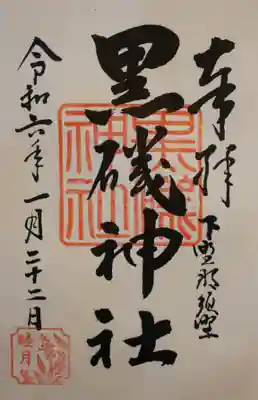 奉拝
下野那須野
黒磯神社
令和六年一月二十二日
黒磯神社
睦月